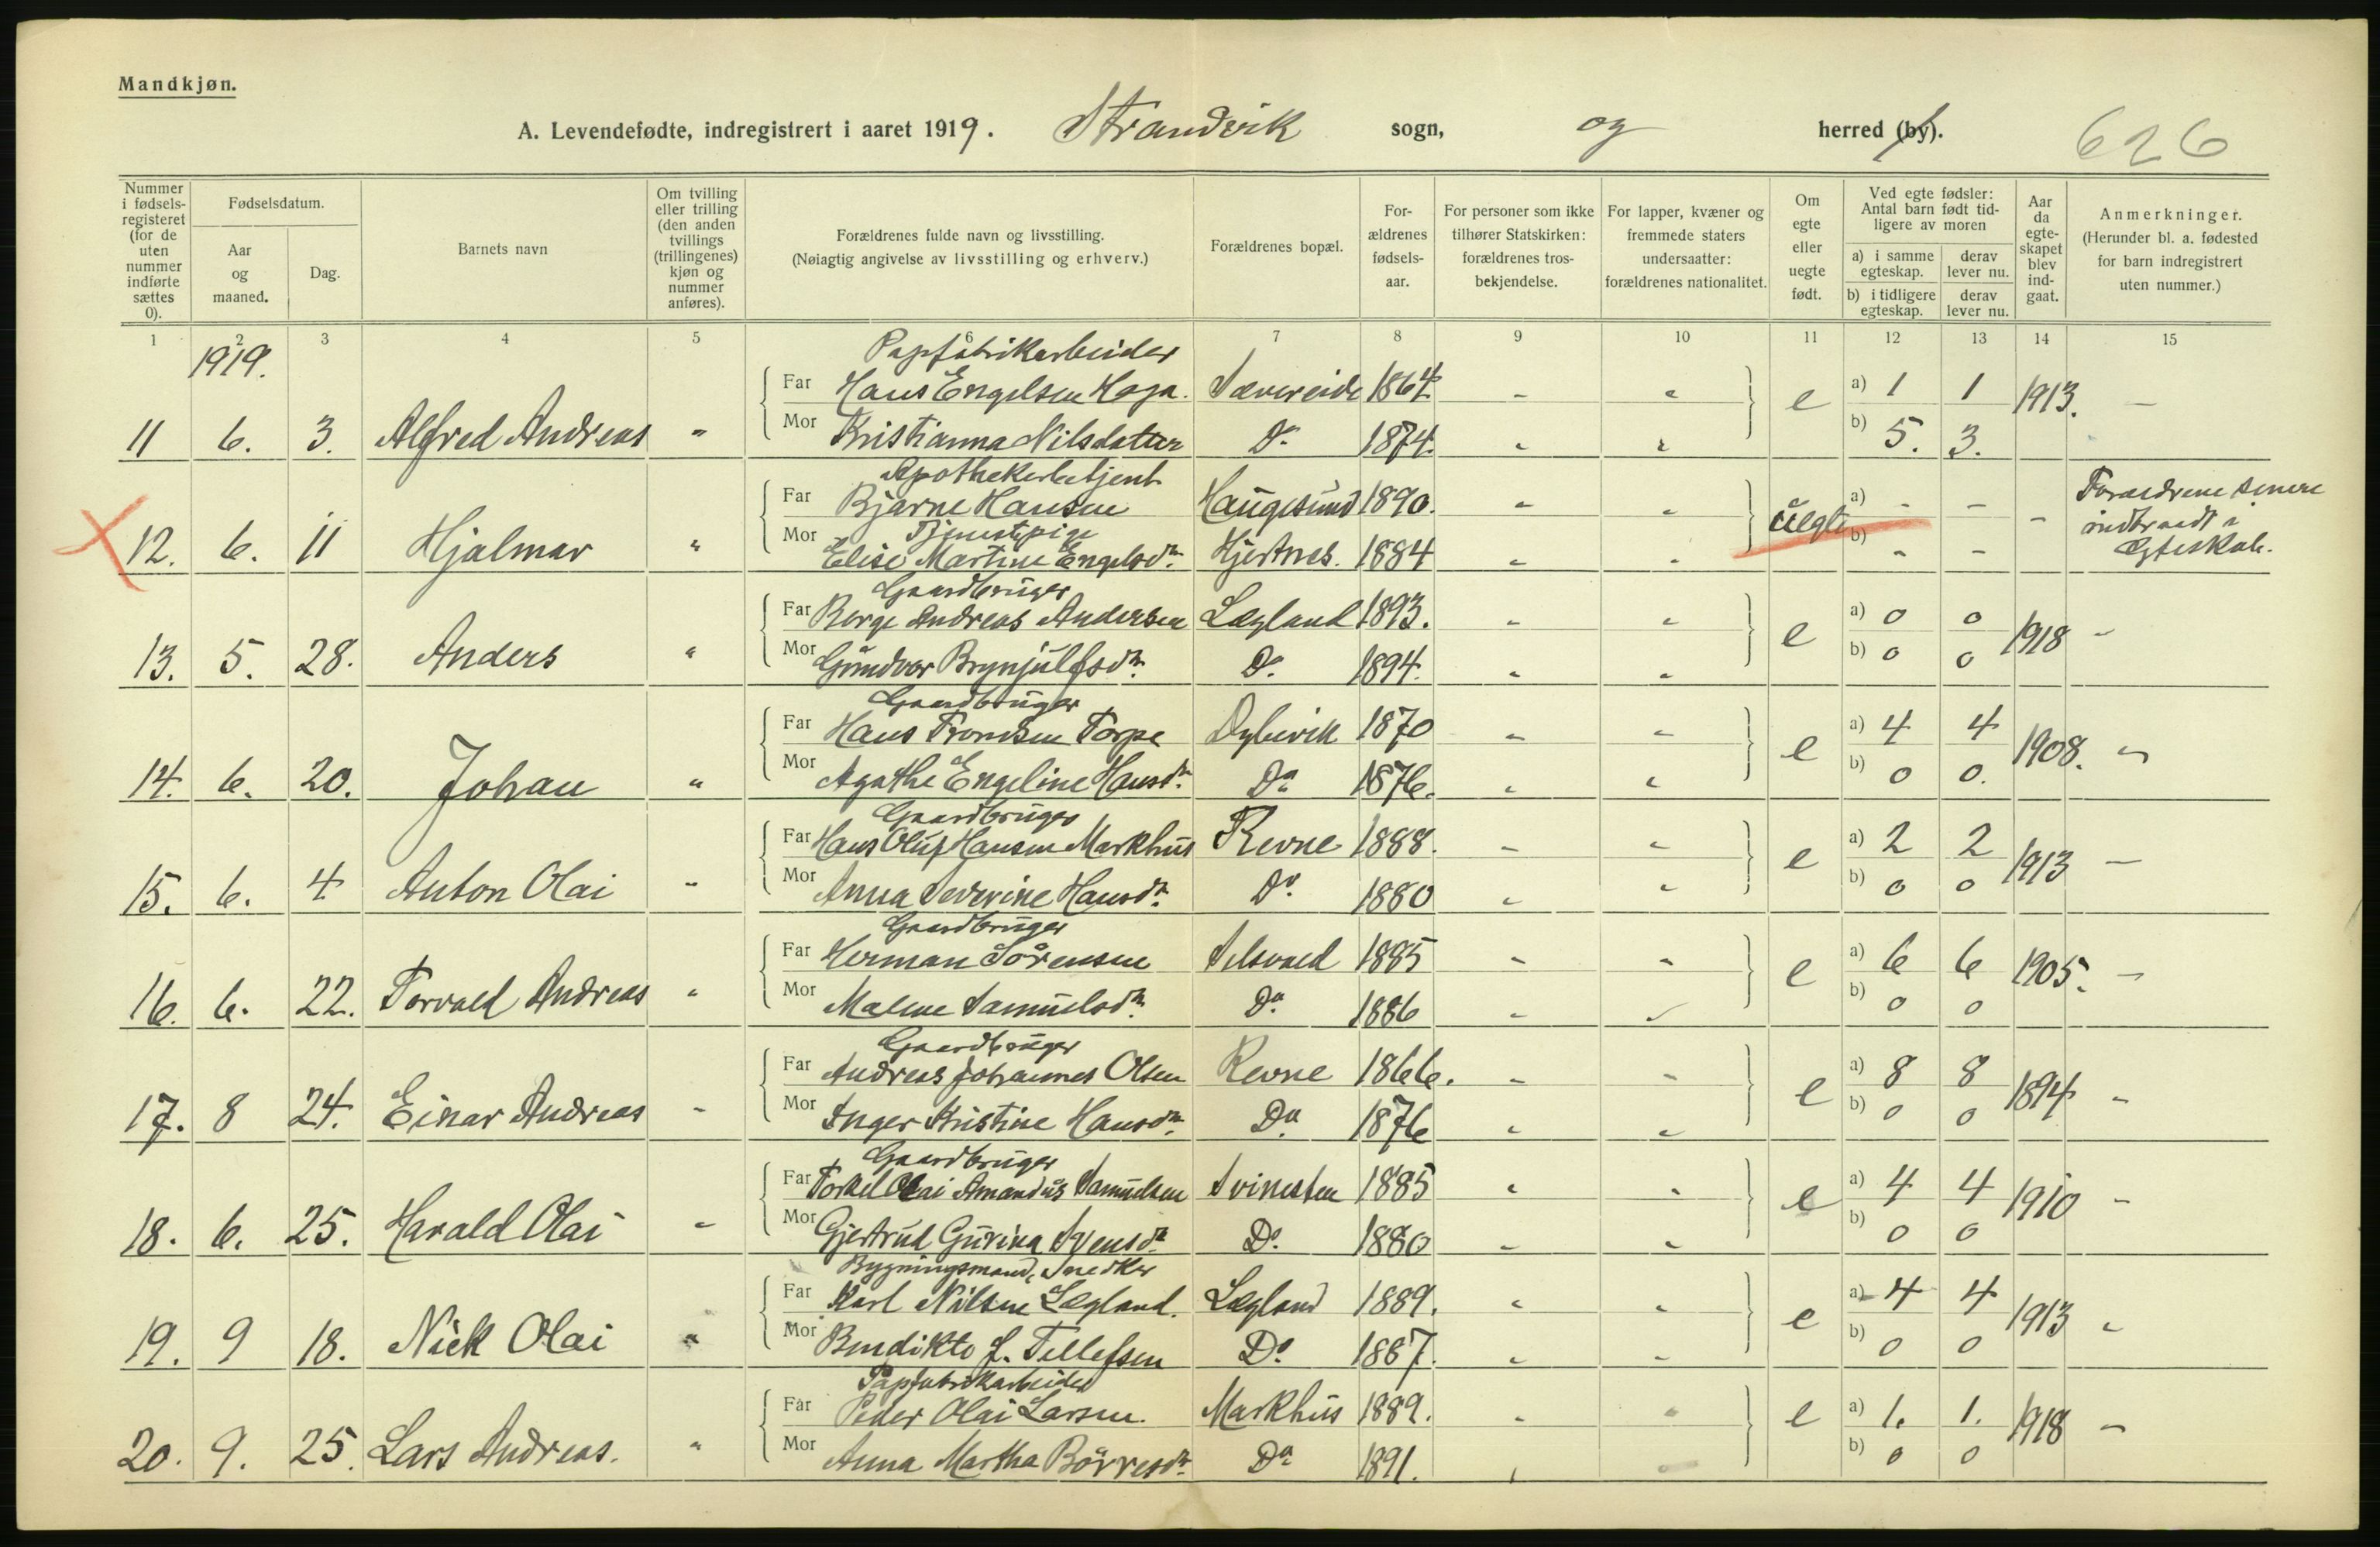 Mandkjøn.
A. Levendefødte, indregistrert i aaret 1919. Strandvik sogn, og herred (by). 626
Nummer i fødsels-registeret (for de uten nummer indførte sættes 0).
Fødselsdatum.
Aar og maaned.
Dag.
Barnets navn
Om tvilling eller trilling (den anden tvillings (trillingenes) kjøn og nummer anføres).
Forældrenes fulde navn og livsstilling.
(Nøiagtig angivelse av livsstilling og erhverv.)
Forældrenes bopæl.
For-ældrenes fødsels-aar.
For personer som ikke tilhører Statskirken: forældrenes tros-bekjendelse.
For lapper, kvæner og fremmede staters undersaatter: forældrenes nationalitet.
Om egte eller uegte født.
Ved egte fødsler: Antal barn født tid-ligere av moren
a) i samme egteskap. derav lever nu.
b) i tidligere egteskap. derav lever nu.
Aar da egte-skapet blev ind-gaat.
Anmerkninger.
(Herunder bl. a. fødested for barn indregistrert uten nummer.)
1 2 3 4 5 6 7 8 9 10 11 12 13 14 15
1919.
Papfabrikarbeider
Far Hans Engelsen Haga. Sævereide 1864 - " e a) 1 1 1913. -
11 6. 3. Alfred Andreas " Mor Kristianna Nilsdatter Do 1874. " " b) 5. 3.
Apothekerbetjent
Far Bjarne Hansen Haugesund 1890. " " uegte a) - - - Forældrene senere indtraadt i Egteskab.
Tjenestepige
12. 6. 11 Hjalmar " Mor Elise Martine Engelsdtr. Hjertnes. 1884 " " b) - -
Gaardbruger
Far Berge Andreas Andersen Lægland 1893. " " e a) 0 0 1918 -
13. 5. 28. Anders " Mor Gundvor Brynjulfsdtr. Do 1894. " " b) 0 0
Gaardbruger
Far Hans Tromsen Torpe Dybvik 1870 " " e a) 4 4 1908. "
14. 6. 20. Johan " Mor Agathe Engeline Hansdtr. Do 1876. " " b) 0 0.
Gaardbruger
Far Hans Oluf Hansen Markhus Revne 1888. " " e a) 2 2 1913 -
15. 6. 4 Anton Olai " Mor Anna Severine Hansdtr. Do 1880 " " b) 0 0
Gaardbruger
Far Herman Sørensen 1885 " " e a) 6 6 1905. -
16. 6. 22. Torvald Andreas " Mor Malene Samuelsdtr. Do 1886 " " b) 0 0
Gaardbruger
Far Andreas Johannes Olsen Revne 1866. " " e a) 8 8 1894 "
17. 8 24. Einar Andreas " Mor Inger Kristine Hansdtr. Do 1876 " " b) 0 0
Gaardbruger
Far Torkel Olai Amandus Samuelsen Svinesten 1885 " " e a) 4 4 1910 -
18. 6. 25. Harald Olai " Mor Gjertrud Gurina Svensdtr. Do 1880 " " b) 0 0
Bygningsmand, Snedker
Far Karl Nilsen Lægland. Lægland 1889. " " e a) 4 4 1913 "
19. 9 18. Nick Olai " Mor Bendikte J. Tellefsen Do 1887. " " b) 0 0
Papfabrikarbeider
Far Peder Olai Larsen. Markhus 1889. " " e a) 1. 1. 1918 -
20. 9. 25. Lars Andreas. " Mor Anna Martha Børresdtr. Do 1891. " " b) 0 0